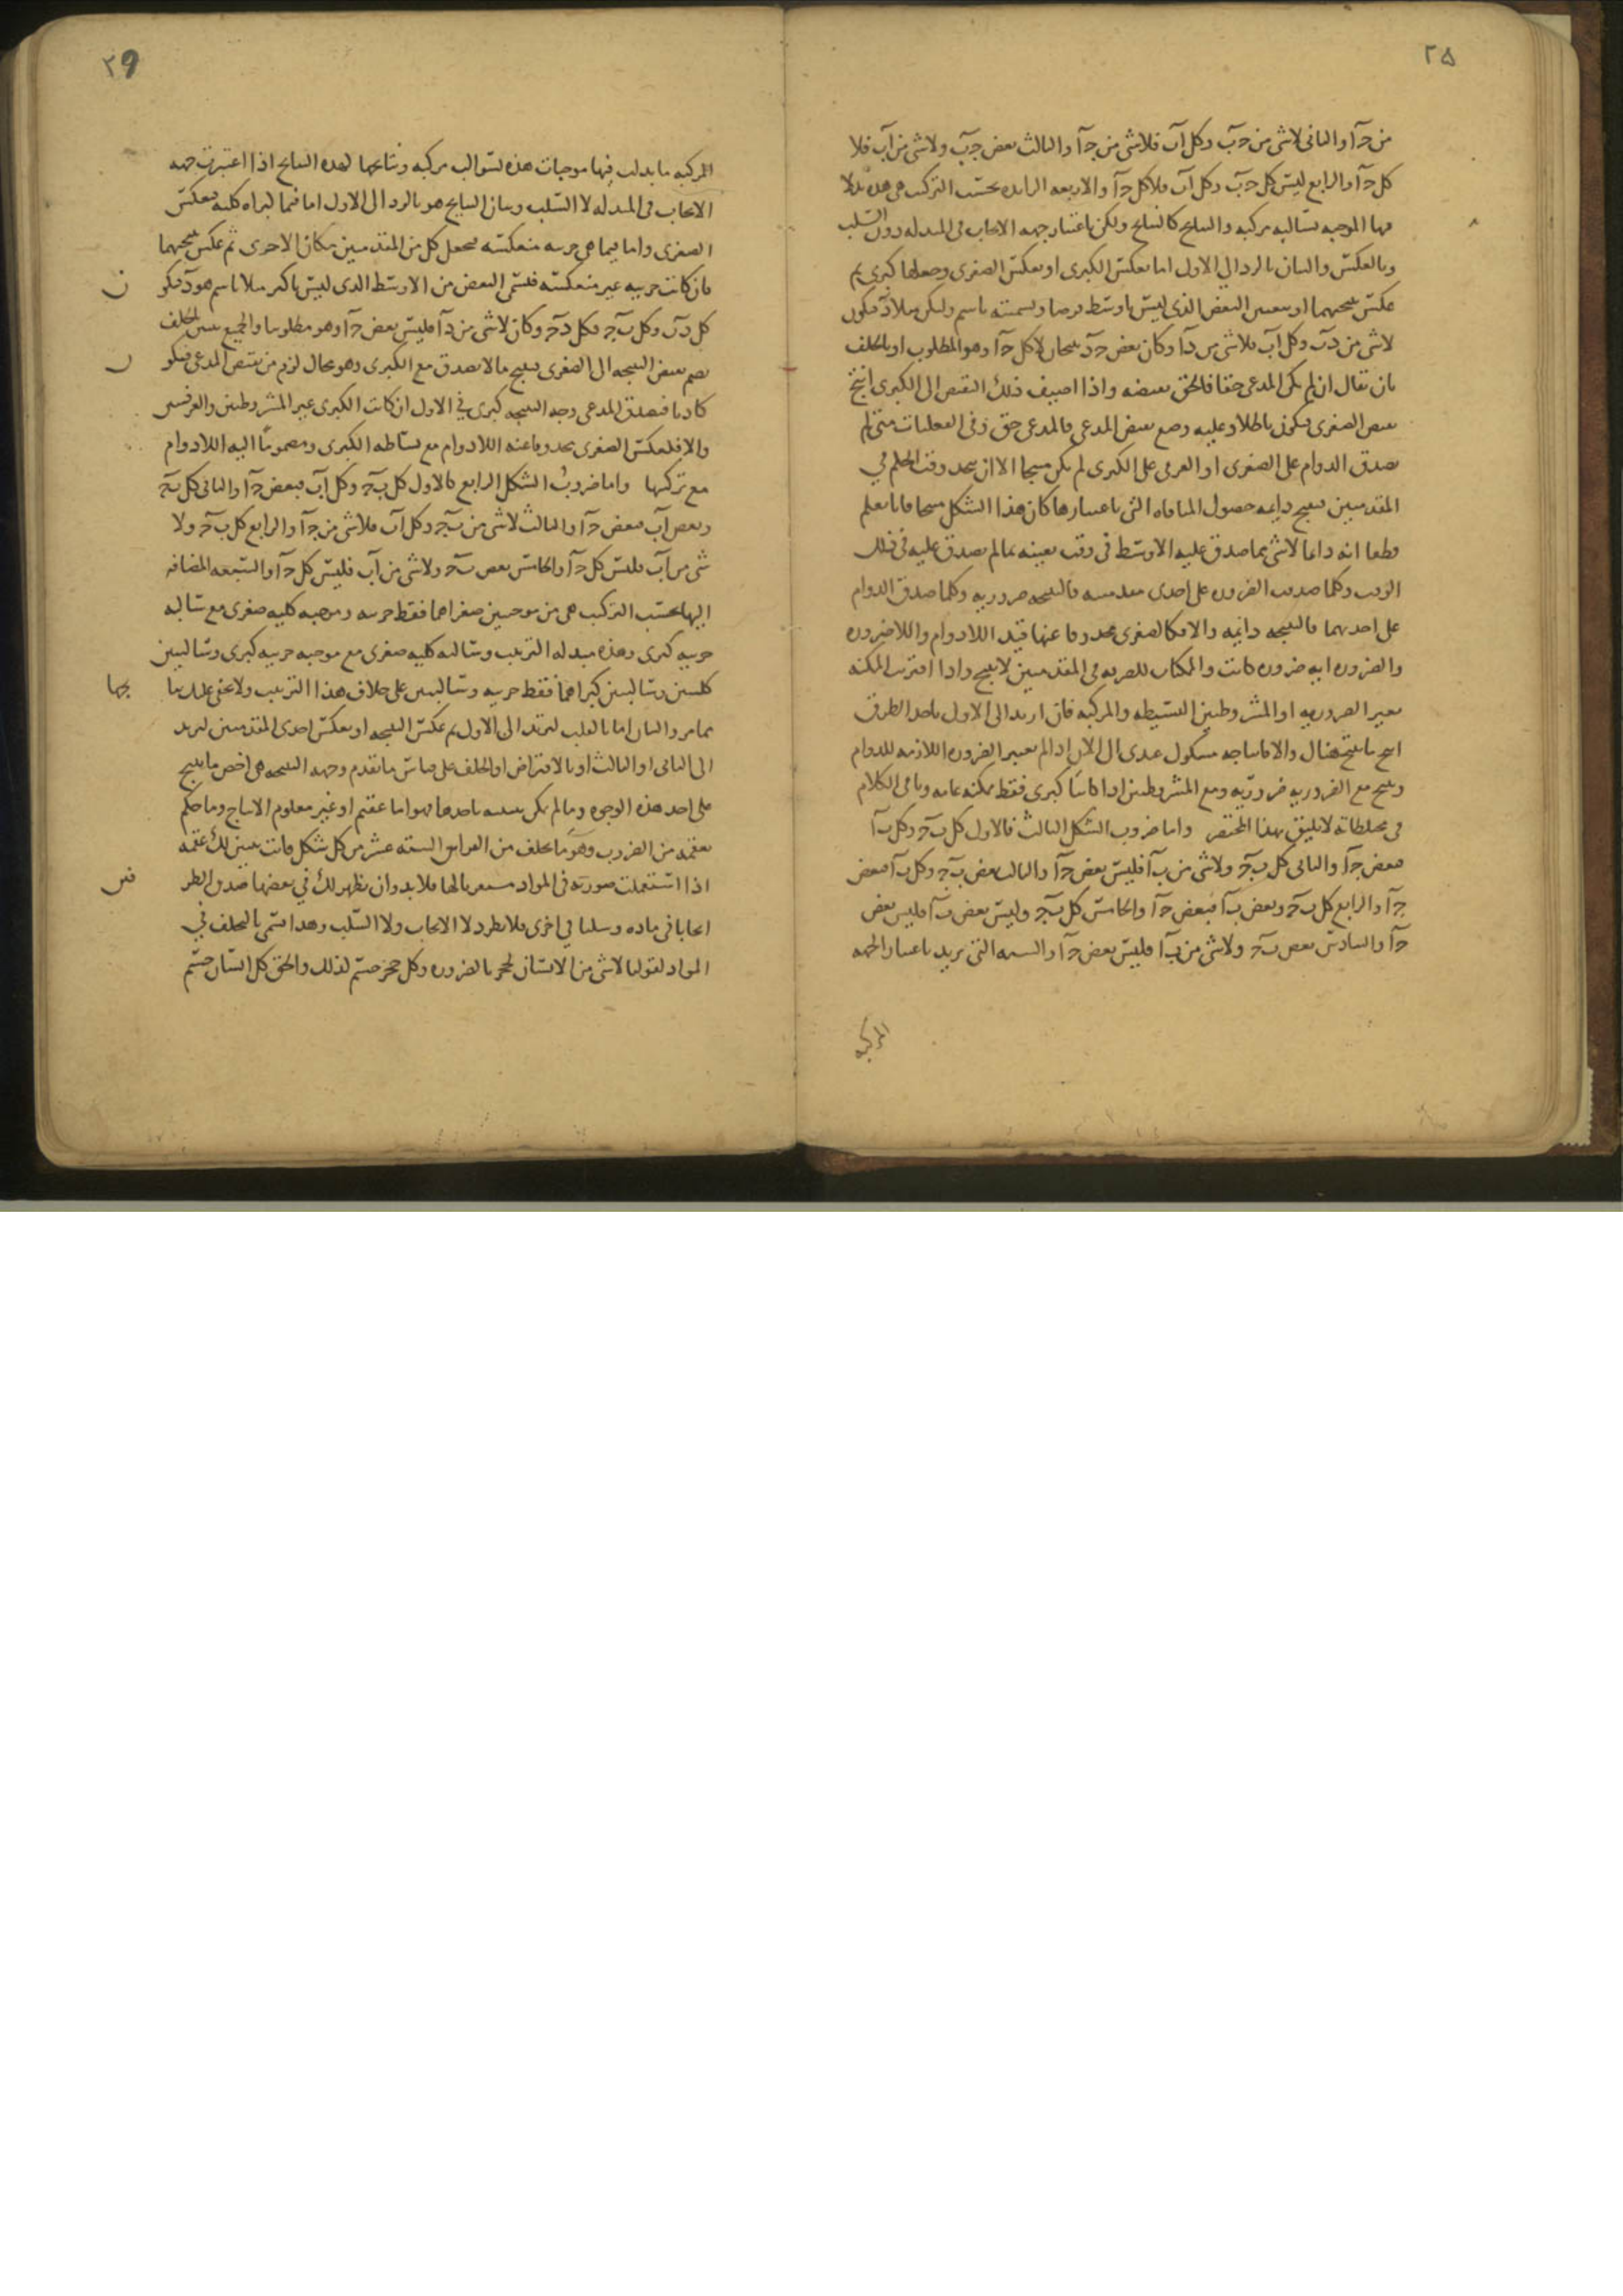 ٢٥
من جـ آ والثانى لاشى من جـ ب وكل آب فلاشى من جـ آ والثالث بعض جـ ب ولاشى من آب فلا
كل جـ آ والرابع ليس كل جـ ب وكل آب فلا كل جـ آ والاربعه الزايده بحسب التركيب هى هذه بدلا
فيها الموجبه بسالبه مركبه والنتايج كالنتايج ولكن باعتبار جهه الايجاب فى المبدله دون السلب
وبالعكس والبيان بالرد الى الاول اما بعكس الكبرى او بعكس الصغرى وجعلها كبرى ثم
عكس نتيجتهما او بتعيين البعض الذى ليس باوسط فرضا وتسميته باسم وليكن مثلا د فيكون
لاشى من د ب وكل آب فلاشى من د آ وكان بعض جـ د ينتجان لا كل جـ آ وهو المطلوب او بالخلف
بان يقال ان لم يكن المدعى حقا فالحق نقيضه واذا اضيف ذلك النقيض الى الكبرى انتج
نقيض الصغرى فيكون باطلا وعليه وضع نقيض المدعى فالمدعى حق وفى الفعليات متى لم
يصدق الدوام على الصغرى او العرفى على الكبرى لم يكن منتجا الا ان يتحد وقت الحكم فى
المقدمتين فينتج دايمه حصول المنافاه التى باعتبارها كان هذا الشكل منتجا فانا نعلم
قطعا انه دايما لاشى مما صدق عليه الاوسط فى وقت بعينه مما لم يصدق عليه فى ذلك
الوقت وكلما صدقت الضروره على احدى مقدمتيه فالنتيجه ضروريه وكلما صدق الدوام
على احديهما فالنتيجه دايمه والا فكالصغرى محذوفا عنها قيد اللادوام واللاضروره
والضروره ايه ضروره كانت والممكنات الصرفه فى المقدمتين لا ينتج واذا اقترنت الممكنه
بغير الضروريه او المشروطتين البسيطه والمركبه فان ارتد الى الاول باحد الطرق
انتج ما ينتج هناك والا فانتاجه مشكوك عندى الى الان اذ لم يعتبر الضروره اللازمه للدوام
وينتج مع الضروريه ضروريه ومع المشروطتين اذا كانتا كبرى فقط ممكنه عامه وباقى الكلام
فى مختلطاته لا يليق بهذا المختصر واما ضروب الشكل الثالث فالاول كل ب جـ وكل ب آ
فبعض جـ آ والثانى كل ب جـ ولاشى من ب آ فليس بعض جـ آ والثالث بعض ب جـ وكل ب آ فبعض
جـ آ والرابع كل ب جـ وبعض ب آ فبعض جـ آ والخامس كل ب جـ وليس بعض ب آ فليس بعض
جـ آ والسادس بعض ب جـ ولاشى من ب آ فليس بعض جـ آ والسته التى يزيد باعتبار الجهه
المركبه
٢٩
المركبه ما بدلت فيها موجبات هذه بسوالب مركبه ونتايجها لهذه النتايج اذا اعتبرت جهه
الايجاب فى المبدله لا السلب وبيان النتايج هو بالرد الى الاول اما فيما كبراه كليه فبعكس
الصغرى واما فيما هى جزييه منعكسه فبجعل كل من المقدمتين مكان الاخرى ثم عكس نتيجتهما
فان كانت جزييه غير منعكسه فلنسم البعض من الاوسط الذى ليس باكبر مثلا باسم هو د فيكو
ن
كل د ب وكل ب جـ فكل د جـ وكان لاشى من د آ فليس بعض جـ آ وهو مطلوبنا والجميع يتبين بالخلف
بضم نقيض النتيجه الى الصغرى فينتج ما لا يصدق مع الكبرى وهو محال لزم من نقيض المدعى فيكو
ن
كاذبا فيصدق المدعى وجهه النتيجه كبرى فى الاول ان كانت الكبرى غير المشروطتين والعرفيتين
والا فلعكس الصغرى محذوفا عنه اللادوام مع بساطه الكبرى ومضمونا اليه اللادوام
مع تركبها واما ضروب الشكل الرابع فالاول كل ب جـ وكل آب فبعض جـ آ والثانى كل ب جـ
وبعض آب فبعض جـ آ والثالث لاشى من ب جـ وكل آب فلاشى من جـ آ والرابع كل ب جـ ولا
شى من آب فليس كل جـ آ والخامس بعض ب جـ ولاشى من آب فليس كل جـ آ والسبعه المضافه
اليها بحسب التركيب هى من موجبتين صغراهما فقط جزييه وموجبه كليه صغرى مع سالبه
جزييه كبرى وهذه مبدله الترتيب وسالبه كليه صغرى مع موجبه جزييه كبرى وسالبتين
كليتين وسالبتين كبراهما فقط جزييه وسالبتين على خلاف هذا الترتيب ولا يخفى عليك نتا
يجها
مما مر والبيان اما بالقلب ليرتد الى الاول ثم عكس النتيجه او بعكس احدى المقدمتين ليرتد
الى الثانى او الثالث او بالافتراض او الخلف على قياس ما تقدم وجهه النتيجه هى اخص ما ينتج
على احد هذه الوجوه وما لم يكن تبيينه باحدها فهو اما عقيم او غير معلوم الانتاج وما حكم
بعقمه من الضروب وهو ما تخلف من القراين السته عشر من كل شكل فانت يتبين لك عقمه
اذا استعملت صورته فى المواد مستقريا لها فلا بد وان يظهر لك فى بعضها صدق الطر
فين
ايجابا فى ماده وسلبا فى اخرى فلا يطرد لا الايجاب ولا السلب وهذا يسمى بالتخلف فى
المواد لقولنا لاشى من الانسان بحجر بالضروره وكل حجر جسم لذلك والحق كل انسان جسم